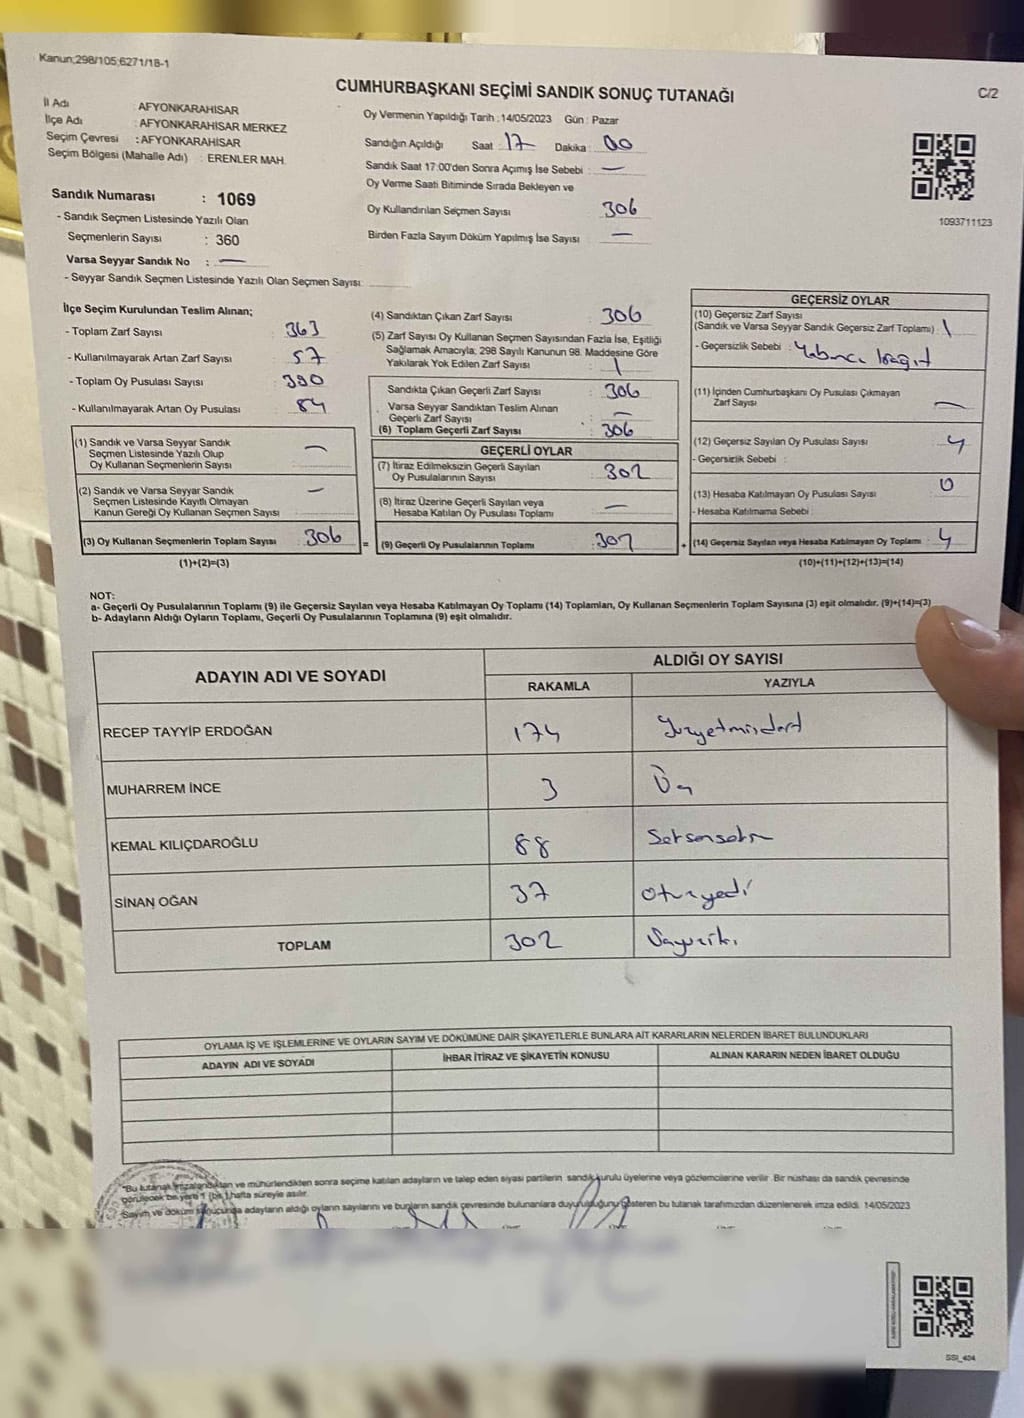 Kanun;298/105;6271/18-1
CUMHURBAŞKANI SEÇİMİ SANDIK SONUÇ TUTANAĞI
C/2
İl Adı : AFYONKARAHİSAR
İlçe Adı : AFYONKARAHİSAR MERKEZ
Seçim Çevresi : AFYONKARAHİSAR
Seçim Bölgesi (Mahalle Adı) : ERENLER MAH.
Sandık Numarası : 1069
- Sandık Seçmen Listesinde Yazılı Olan
Seçmenlerin Sayısı : 360
Varsa Seyyar Sandık No : —
- Seyyar Sandık Seçmen Listesinde Yazılı Olan Seçmen Sayısı
Oy Vermenin Yapıldığı Tarih : 14/05/2023 Gün : Pazar
Sandığın Açıldığı Saat : 17 Dakika : 00
Sandık Saat 17:00'den Sonra Açımış İse Sebebi : —
Oy Verme Saati Bitiminde Sırada Bekleyen ve
Oy Kullandırılan Seçmen Sayısı 306
Birden Fazla Sayım Döküm Yapılmış İse Sayısı : —
1093711123
İlçe Seçim Kurulundan Teslim Alınan;
- Toplam Zarf Sayısı : 363
- Kullanılmayarak Artan Zarf Sayısı : 57
- Toplam Oy Pusulası Sayısı : 390
- Kullanılmayarak Artan Oy Pusulası : 84
(1) Sandık ve Varsa Seyyar Sandık
Seçmen Listesinde Yazılı Olup
Oy Kullanan Seçmenlerin Sayısı —
(2) Sandık ve Varsa Seyyar Sandık
Seçmen Listesinde Kayıtlı Olmayan
Kanun Gereği Oy Kullanan Seçmen Sayısı —
(3) Oy Kullanan Seçmenlerin Toplam Sayısı 306
(1)+(2)=(3)
(4) Sandıktan Çıkan Zarf Sayısı : 306
(5) Zarf Sayısı Oy Kullanan Seçmen Sayısından Fazla İse, Eşitliği
Sağlamak Amacıyla; 298 Sayılı Kanunun 98. Maddesine Göre
Yakılarak Yok Edilen Zarf Sayısı
Sandıkta Çıkan Geçerli Zarf Sayısı : 306
Varsa Seyyar Sandıktan Teslim Alınan
Geçerli Zarf Sayısı : —
(6) Toplam Geçerli Zarf Sayısı : 306
GEÇERLİ OYLAR
(7) İtiraz Edilmeksizin Geçerli Sayılan
Oy Pusulalarının Sayısı : 302
(8) İtiraz Üzerine Geçerli Sayılan veya
Hesaba Katılan Oy Pusulası Toplamı : —
= (9) Geçerli Oy Pusulalarının Toplamı : 302
GEÇERSİZ OYLAR
(10) Geçersiz Zarf Sayısı
(Sandık ve Varsa Seyyar Sandık Geçersiz Zarf Toplamı) :
- Geçersizlik Sebebi : Yabancı kağıt
(11) İçinden Cumhurbaşkanı Oy Pusulası Çıkmayan
Zarf Sayısı —
(12) Geçersiz Sayılan Oy Pusulası Sayısı : 4
- Geçersizlik Sebebi :
(13) Hesaba Katılmayan Oy Pusulası Sayısı : 0
- Hesaba Katılmama Sebebi
+ (14) Geçersiz Sayılan veya Hesaba Katılmayan Oy Toplamı : 4
(10)+(11)+(12)+(13)=(14)
NOT:
a- Geçerli Oy Pusulalarının Toplamı (9) ile Geçersiz Sayılan veya Hesaba Katılmayan Oy Toplamı (14) Toplamları, Oy Kullanan Seçmenlerin Toplam Sayısına (3) eşit olmalıdır. (9)+(14)=(3)
b- Adayların Aldığı Oyların Toplamı, Geçerli Oy Pusulalarının Toplamına (9) eşit olmalıdır.
ADAYIN ADI VE SOYADI
ALDIĞI OY SAYISI
RAKAMLA YAZIYLA
RECEP TAYYİP ERDOĞAN 174 Yüzyetmişdört
MUHARREM İNCE 3 Üç
KEMAL KILIÇDAROĞLU 88 Seksensekiz
SİNAN OĞAN 37 Otuzyedi
TOPLAM 302 Üçyüziki
OYLAMA İŞ VE İŞLEMLERİNE VE OYLARIN SAYIM VE DÖKÜMÜNE DAİR ŞİKAYETLERLE BUNLARA AİT KARARLARIN NELERDEN İBARET BULUNDUKLARI
ADAYIN ADI VE SOYADI İHBAR İTİRAZ VE ŞİKAYETİN KONUSU ALINAN KARARIN NEDEN İBARET OLDUĞU
"Bu tutanak imzalandıktan ve mühürlendikten sonra seçime katılan adayların ve talep eden siyasi partilerin sandık kurulu üyelerine veya gözlemcilerine verilir. Bir nüshası da sandık çevresinde
görülecek bir yere 1 (bir) hafta süreyle asılır.
Sayım ve döküm sonucunda adayların aldığı oyların sayılarını ve bunların sandık çevresinde bulunanlara duyurulduğunu gösteren bu tutanak tarafımızdan düzenlenerek imza edildi. 14/05/2023
SSI_404